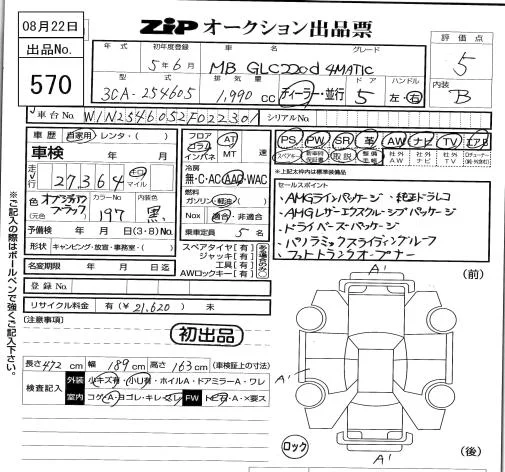 08月22日
ZIP オークション出品票
出品No.
570
評価点
5
内装
B
年式 初年度登録 車名 グレード
5年6月 MB GLC220d 4MATIC
型式 排気量 ドア ハンドル
3CA-254605 1,990 CC ディーラー・並行 5 左・右
車台No. W1N2546052F022301 シリアルNo.
車歴 自家用・レンタ・( )
車検 年 月
走行 27,364 キロ マイル
色 オブシディアンブラック (元色 ) カラーNo. 197 内装色 黒
予備検 年 月 日(3・8)No.
形状 キャンピング・放宣・事務室・( )
名変期限 年 月 日迄
登録No.
リサイクル料金 有(¥21,620) 無
フロア コラム インパネ AT MT 速
冷房 無・C・AC・AAC・WAC
燃料 ガソリン・軽油・( )
Nox 適合・非適合
乗車定員 5 名
スペアタイヤ[有]
ジャッキ[有]
工具[有]
AWロックキー[有]
ある場合のみ○
PS PW SR 革 AW ナビ TV エアB
スペアキー 新車時保証書 取説 整備手帳 社外AW 社外ナビ 社外TV
※上記太枠内は標準装備品
セールスポイント
・AMGラインパッケージ ・純正ドラレコ
・AMGレザーエクスクルーシブパッケージ
・ドライバーズパッケージ
・パノラミックスライディングルーフ
・フットトランクオープナー
[注意事項]
初出品
長さ 472 cm 幅 189 cm 高さ 163 cm (車検証上の寸法)
検査記入 外装 小キズ有・小U有・ホイルA・ドアミラーA・ワレ
室内 コゲA・ヨゴレ・キレ・スレ FW トビ石・A・×要ス
A' (前)
A'
A' (後)
ロック
※ご記入の際はボールペンで強くご記入下さい。